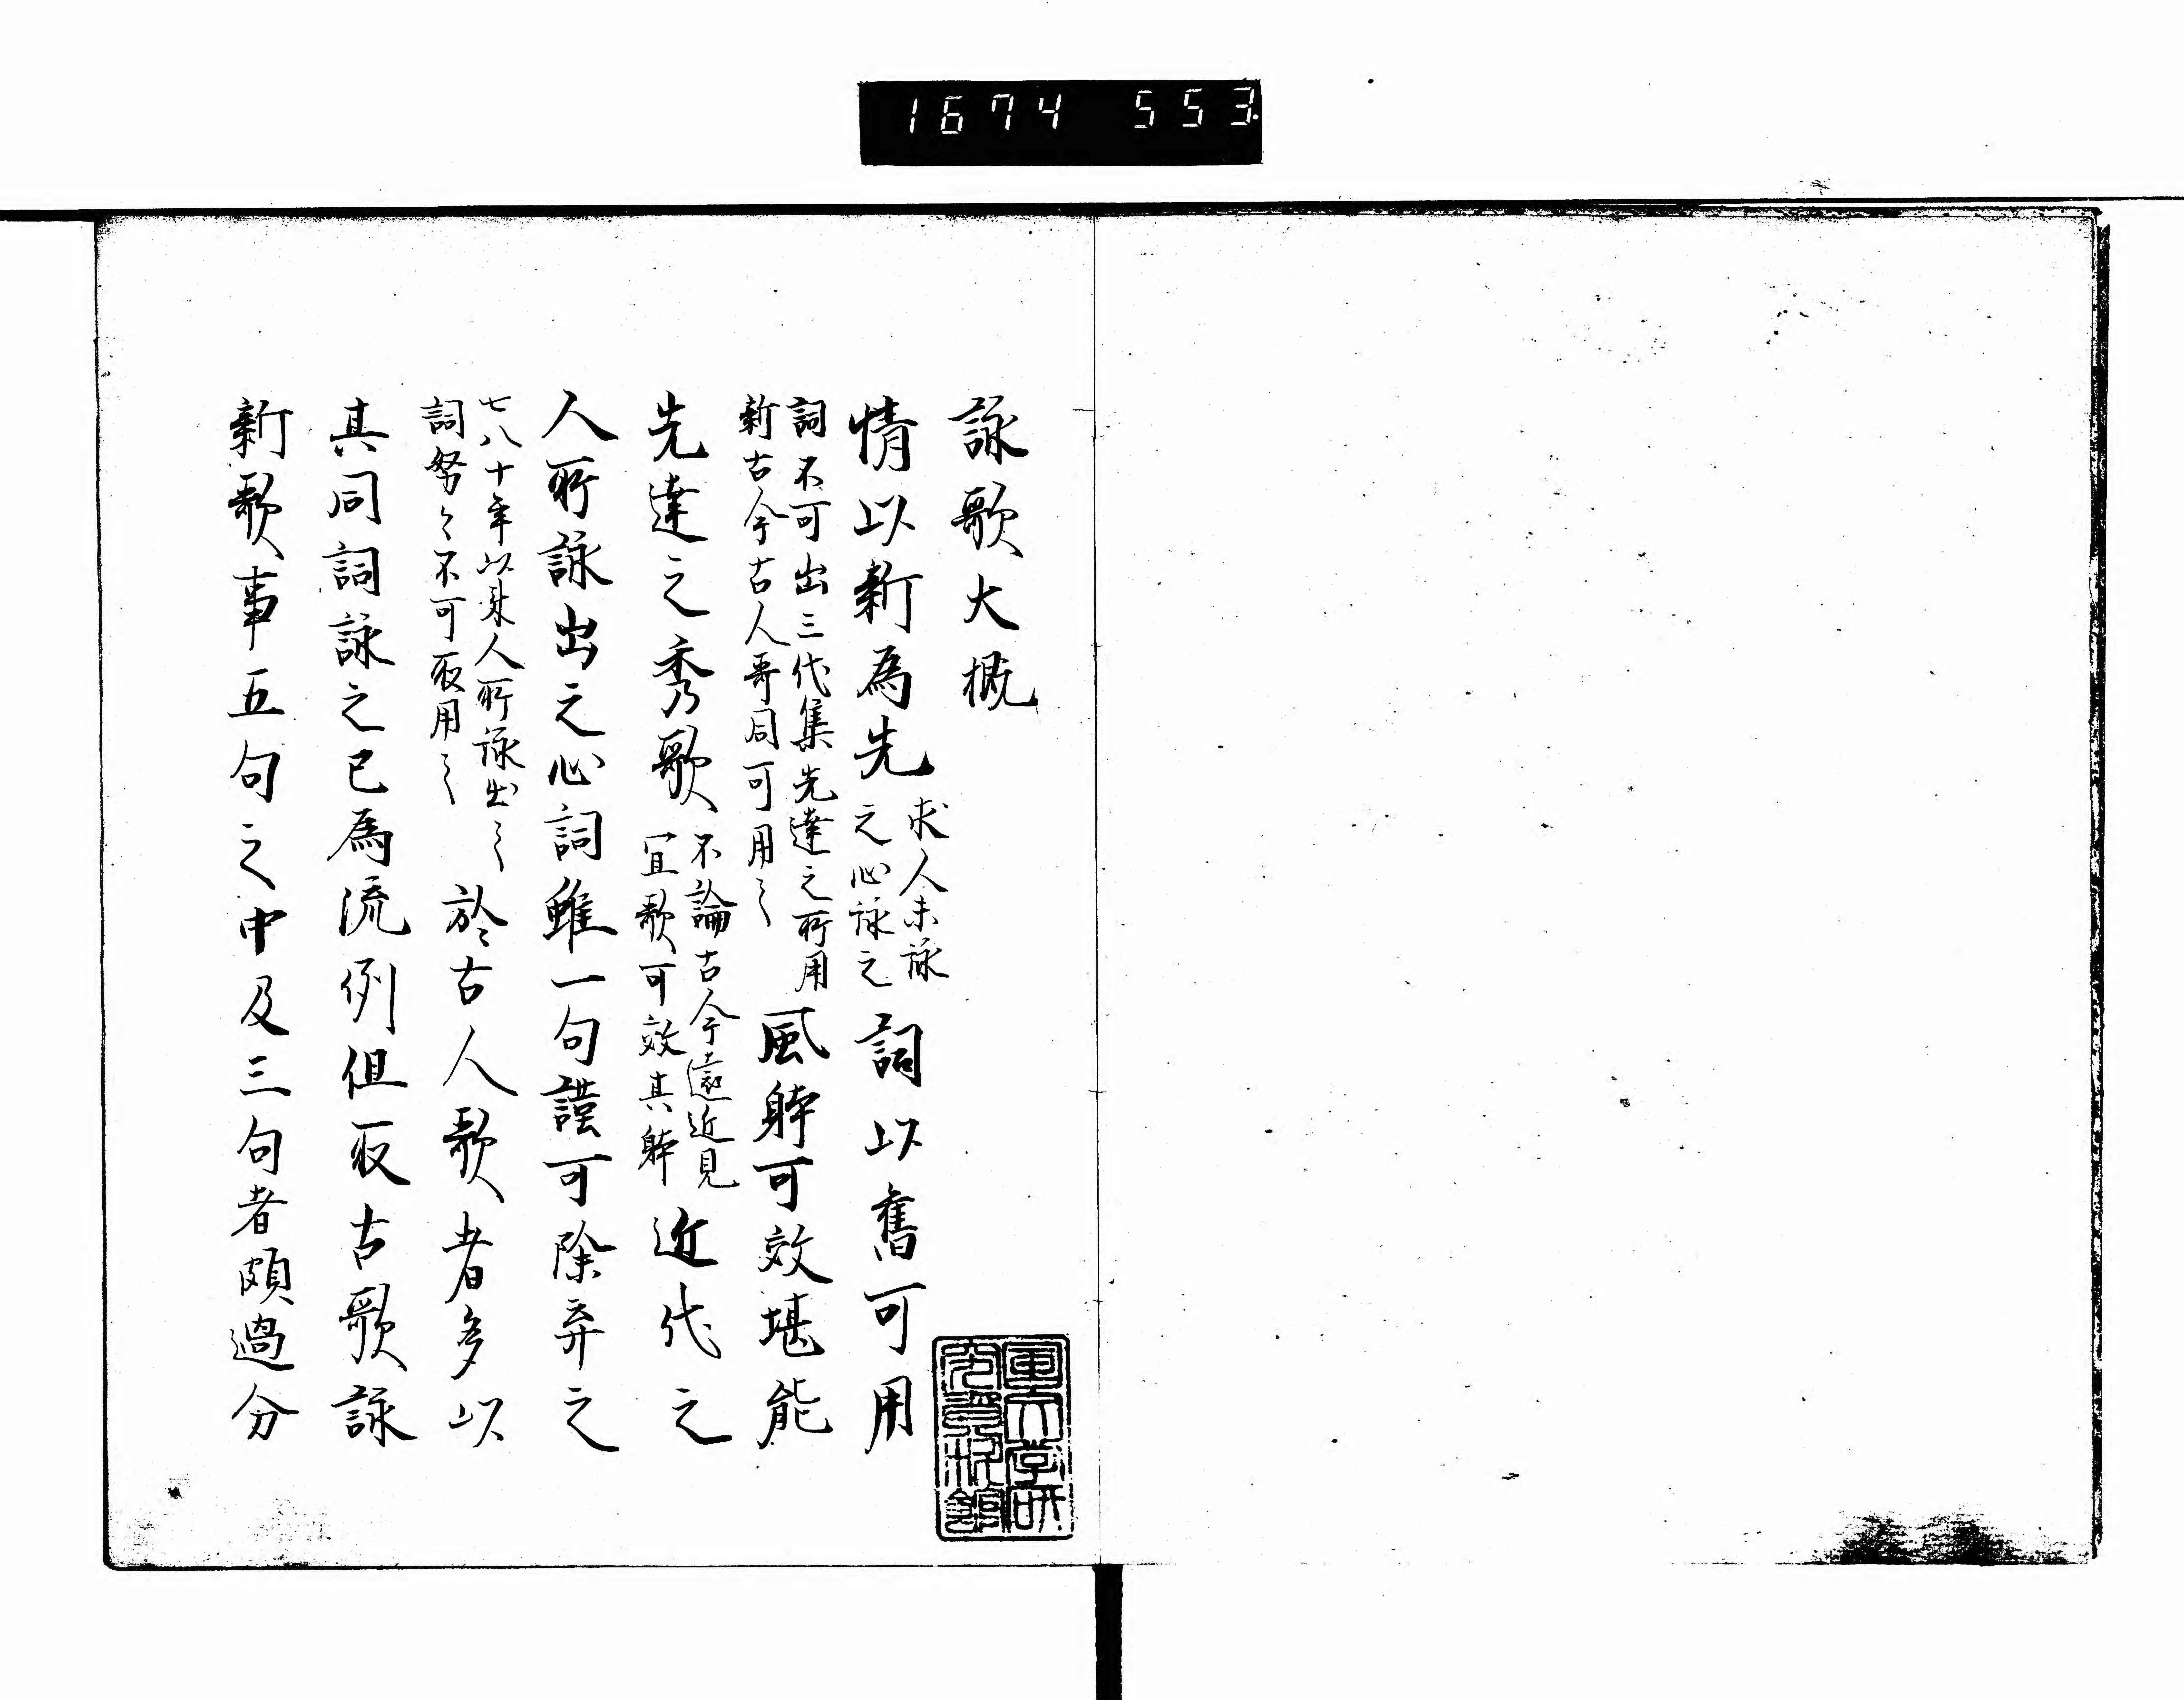 1674 553.
詠歌大概
情以新為先
求人未詠
之心詠之
詞以舊可用
詞不可出三代集先達之所用
新古今古人哥同可用之
風躰可效堪能
先達之秀歌
不論古今遠近見
宜歌可效其躰
近代之
人所詠出之心詞雖一句謹可除弃之
七八十年以来人所詠出之
詞努々不可取用之
於古人歌者多以
其同詞詠之已為流例但取古歌詠
新歌事五句之中及三句者頗過分
国文学研
究資料館